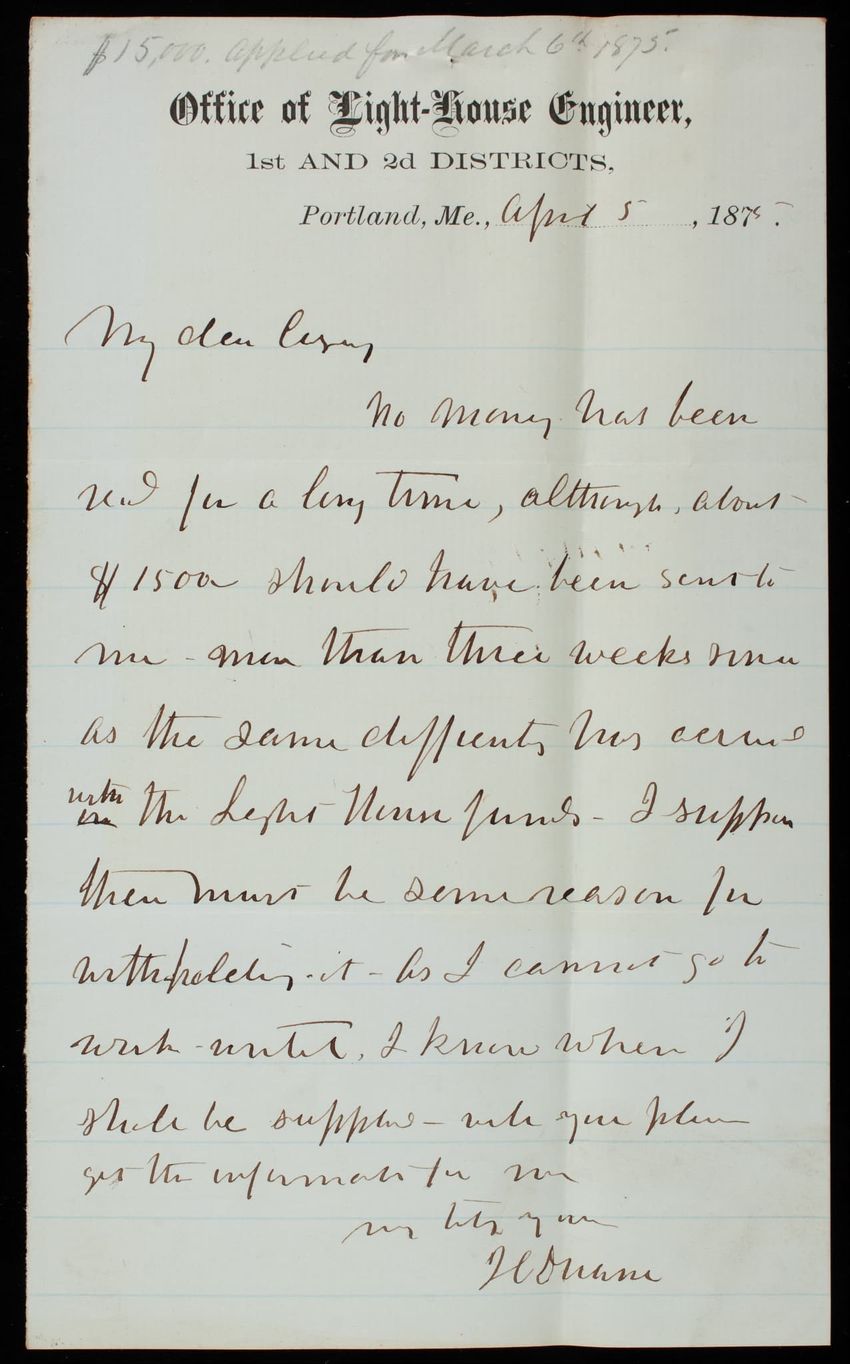 $15,000. applied for March 6th 1875.
Office of Light-House Engineer,
1st AND 2d DISTRICTS,
Portland, Me., April 5, 1875.
My dear Casey
No money has been
recd for a long time, although, about
$1500 should have been sent to
me - more than three weeks since
as the same difficulty has occurred
with the Light House funds - I suppose
there must be some reason for
withholding it - As I cannot go to
work - until, I know when I
shall be supplied - will you please
get the information for me
truly yours
J C Duane